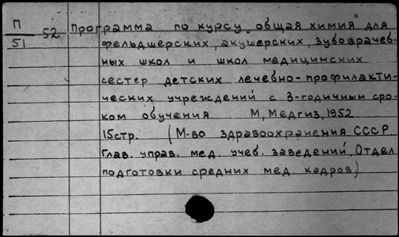 П
51
52 Программа по курсу „общая химия" для
фельдшерских, акушерских, зубоврачеб-
ных школ и школ медицинских
сестер детских лечебно-профилакти-
ческих учреждений с 3-годичным сро-
ком обучения. М, Медгиз, 1952
15стр. (М-во здравоохранения СССР
Глав. управ. мед. учеб. заведений. Отдел
подготовки средних мед. кадров)